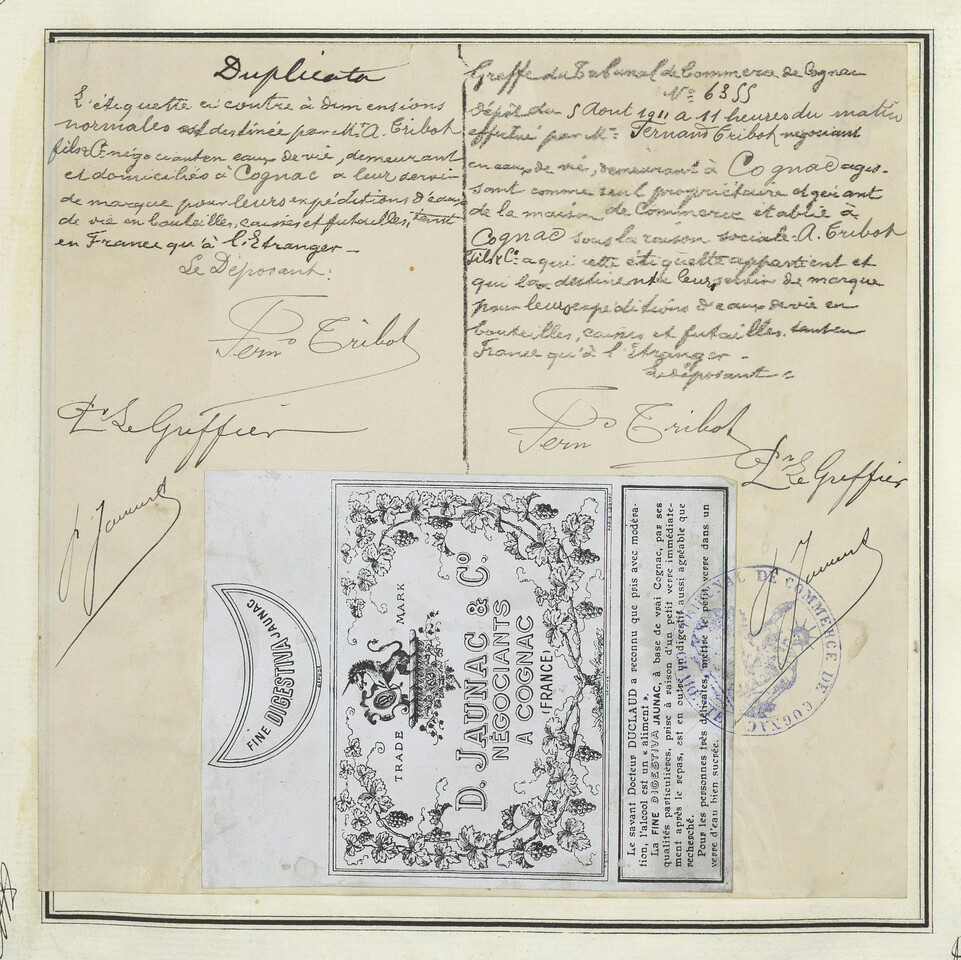 Duplicata
L'étiquette ci contre à dimensions
normales est destinée par Mr. A. Tribot
fils & Cie négociant en eaux de vie, demeurant
et domiciliés à Cognac à leur servir
de marque pour leurs expéditions d'eaux
de vie en bouteilles, caisses et futailles, tant
en France qu'à l'Etranger —
Le Déposant:
Fernd Tribot
Pr Le Greffier
Greffe du Tribunal de Commerce de Cognac
No 6355
Dépôt du 5 Aout 1911 à 11 heures du matin
effectué par Mr Fernand Tribot négociant
en eaux de vie, demeurant à Cognac agis-
sant comme seul propriétaire et gérant
de la maison de Commerce établie à
Cognac sous la raison sociale A. Tribot
Fils & Cie a qui cette étiquette appartient et
qui la destinent à leur servir de marque
pour leurs expéditions d'eaux de vie en
bouteilles, caisses et futailles. tant en
France qu'à l'Etranger —
Le déposant
Fernd Tribot
Pr Le Greffier
FINE DIGESTIVA JAUNAC
DÉPOSÉ
TRADE MARK
D. JAUNAC & Co
NÉGOCIANTS
A COGNAC
(FRANCE)
Le savant Docteur DUCLAUD a reconnu que pris avec modéra-
tion, l'alcool est un « aliment ».
La FINE DIGESTIVA JAUNAC, à base de vrai Cognac, par ses
qualités particulières, prise à raison d'un petit verre immédiate-
ment après le repas, est en outre un digestif aussi agréable que
recherché.
Pour les personnes très délicates, mettre le petit verre dans un
verre d'eau bien sucrée.
TRIBUNAL DE COMMERCE DE COGNAC